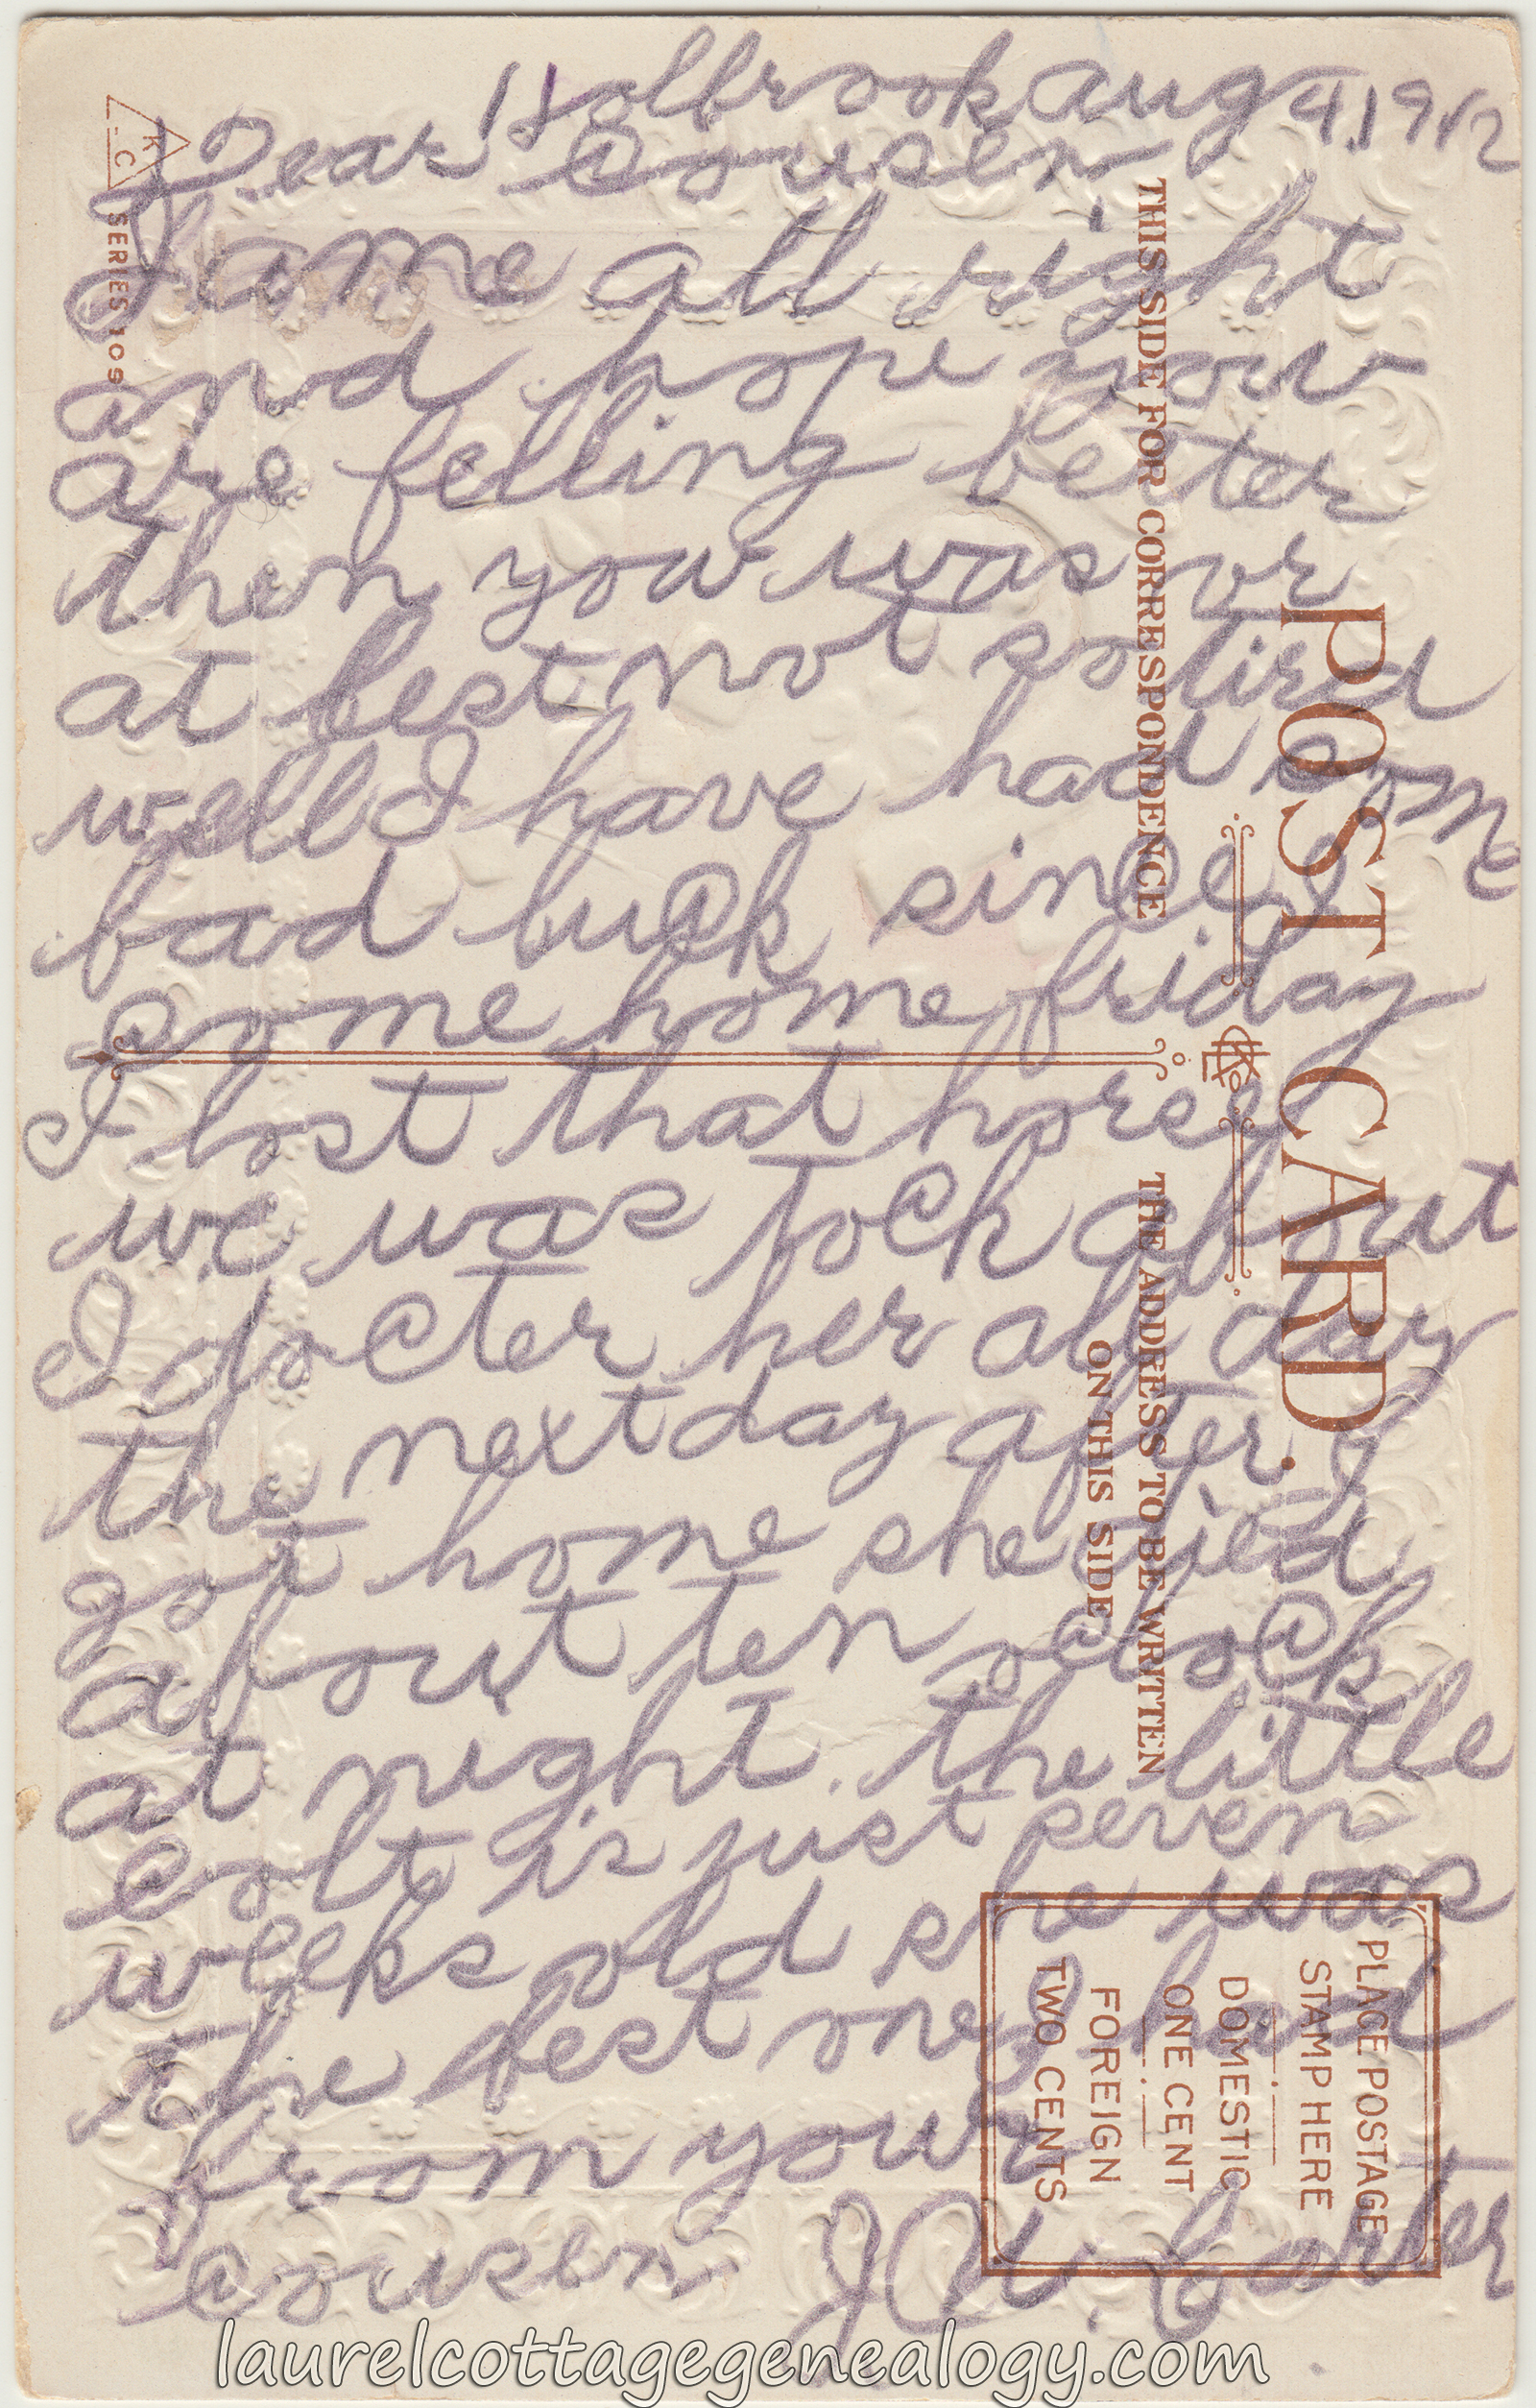 Holbrook Aug 4, 1912
Dear Cousen
I ame all right
and hope you
are felling better
then you was or
at best not so tired
well I have had some
bad luck since I
come home friday
I lost that horse
we was tock about
I docter her all day
the next day after I
got home she died
about ten oclock
at night. the little
colt is just seven
weeks old she was
the best one I had
from your
cousen J W. Carter
POST CARD.
THIS SIDE FOR CORRESPONDENCE
THE ADDRESS TO BE WRITTEN
ON THIS SIDE
PLACE POSTAGE
STAMP HERE
DOMESTIC
ONE CENT
FOREIGN
TWO CENTS
K
C
SERIES 109
laurelcottagegenealogy.com